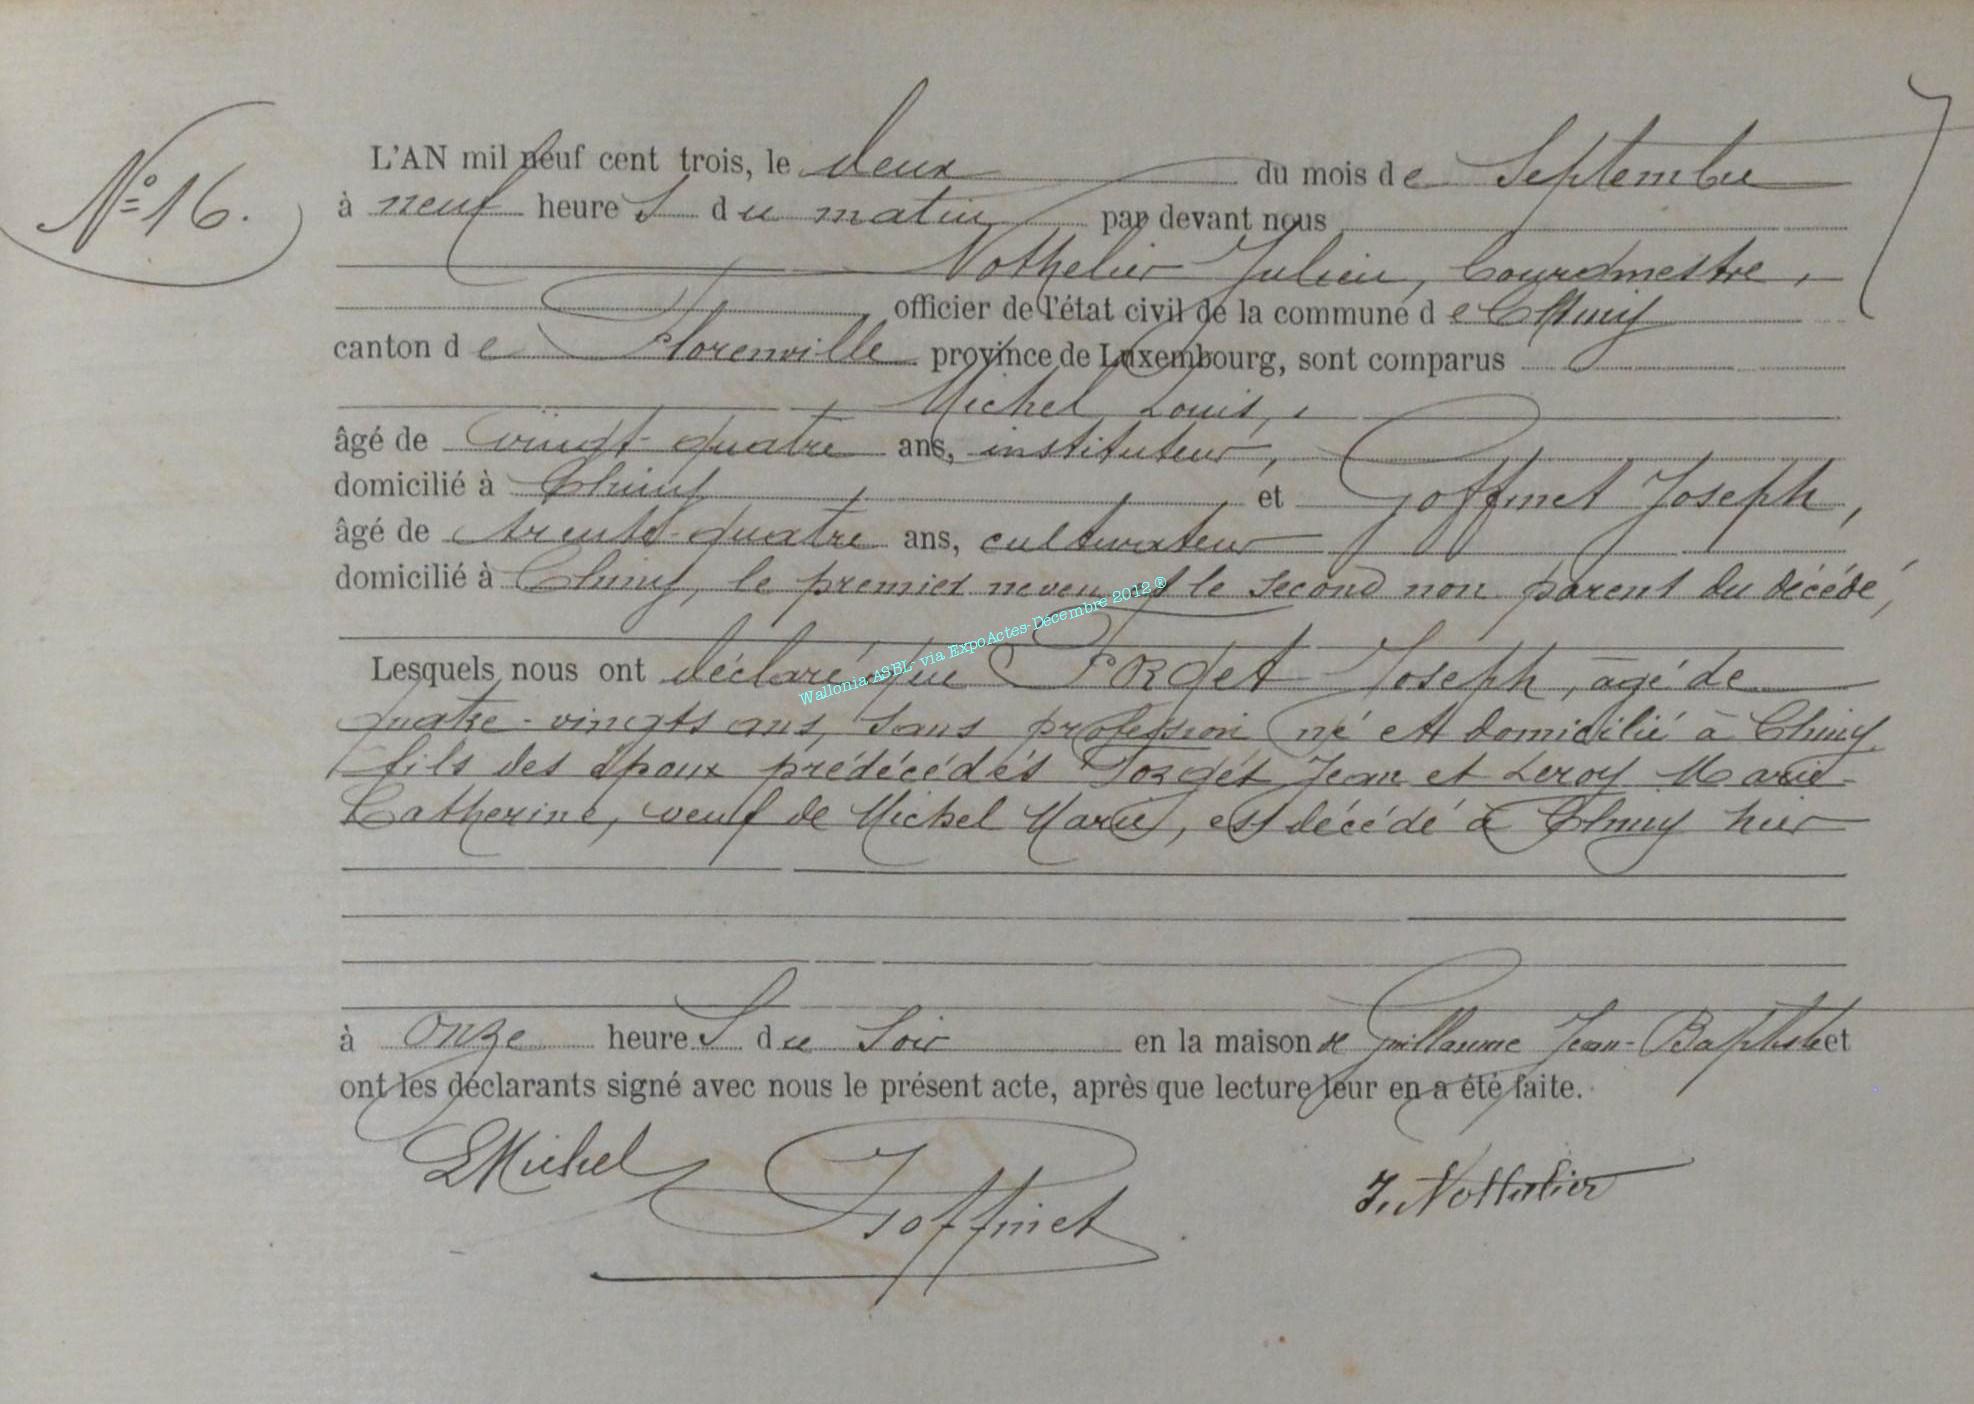 N° 16.
L'AN mil neuf cent trois, le deux du mois de Septembre
à neuf heures du matin par devant nous
Nothelier Julien, Bourgmestre,
officier de l'état civil de la commune de Chiny
canton de Florenville province de Luxembourg, sont comparus
Michel Louis,
âgé de vingt-quatre ans, instituteur,
domicilié à Chiny, et Goffinet Joseph,
âgé de trente-quatre ans, cultivateur
domicilié à Chiny, le premier neveu et le second non parent du décédé,
Wallonia ASBL- via ExpoActes-Décembre 2012®
Lesquels nous ont déclaré que Forget Joseph, âgé de
quatre-vingts ans, sans profession né et domicilié à Chiny
fils des époux prédécédés Forget Jean et Leroy Marie-
Catherine, veuf de Michel Marie, est décédé à Chiny hier
à onze heures du soir en la maison de Guillaume Jean-Baptiste et
ont les déclarants signé avec nous le présent acte, après que lecture leur en a été faite.
LMichel
JGoffinet
J. Nothelier